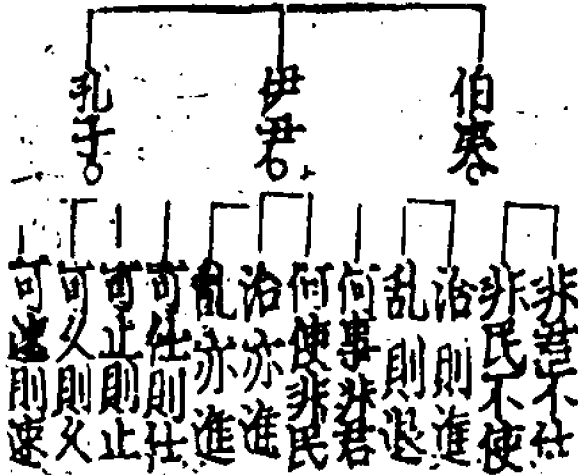 伯夷
非君不仕
非民不使
治則進
乱則退
伊尹
何事非君
何使非民
治亦進
乱亦進
孔子
可仕則仕
可止則止
可久則久
可速則速